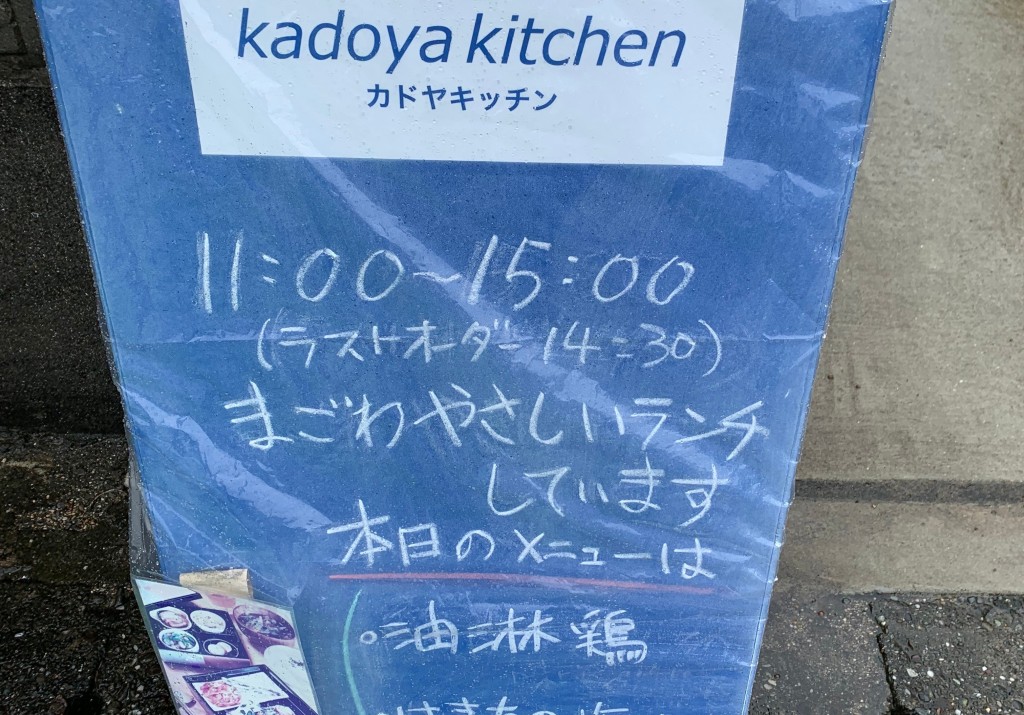 kadoya kitchen
カドヤキッチン
11:00~15:00
(ラストオーダー14:30)
まごわやさしいランチ
しています
本日のメニューは
○油淋鶏